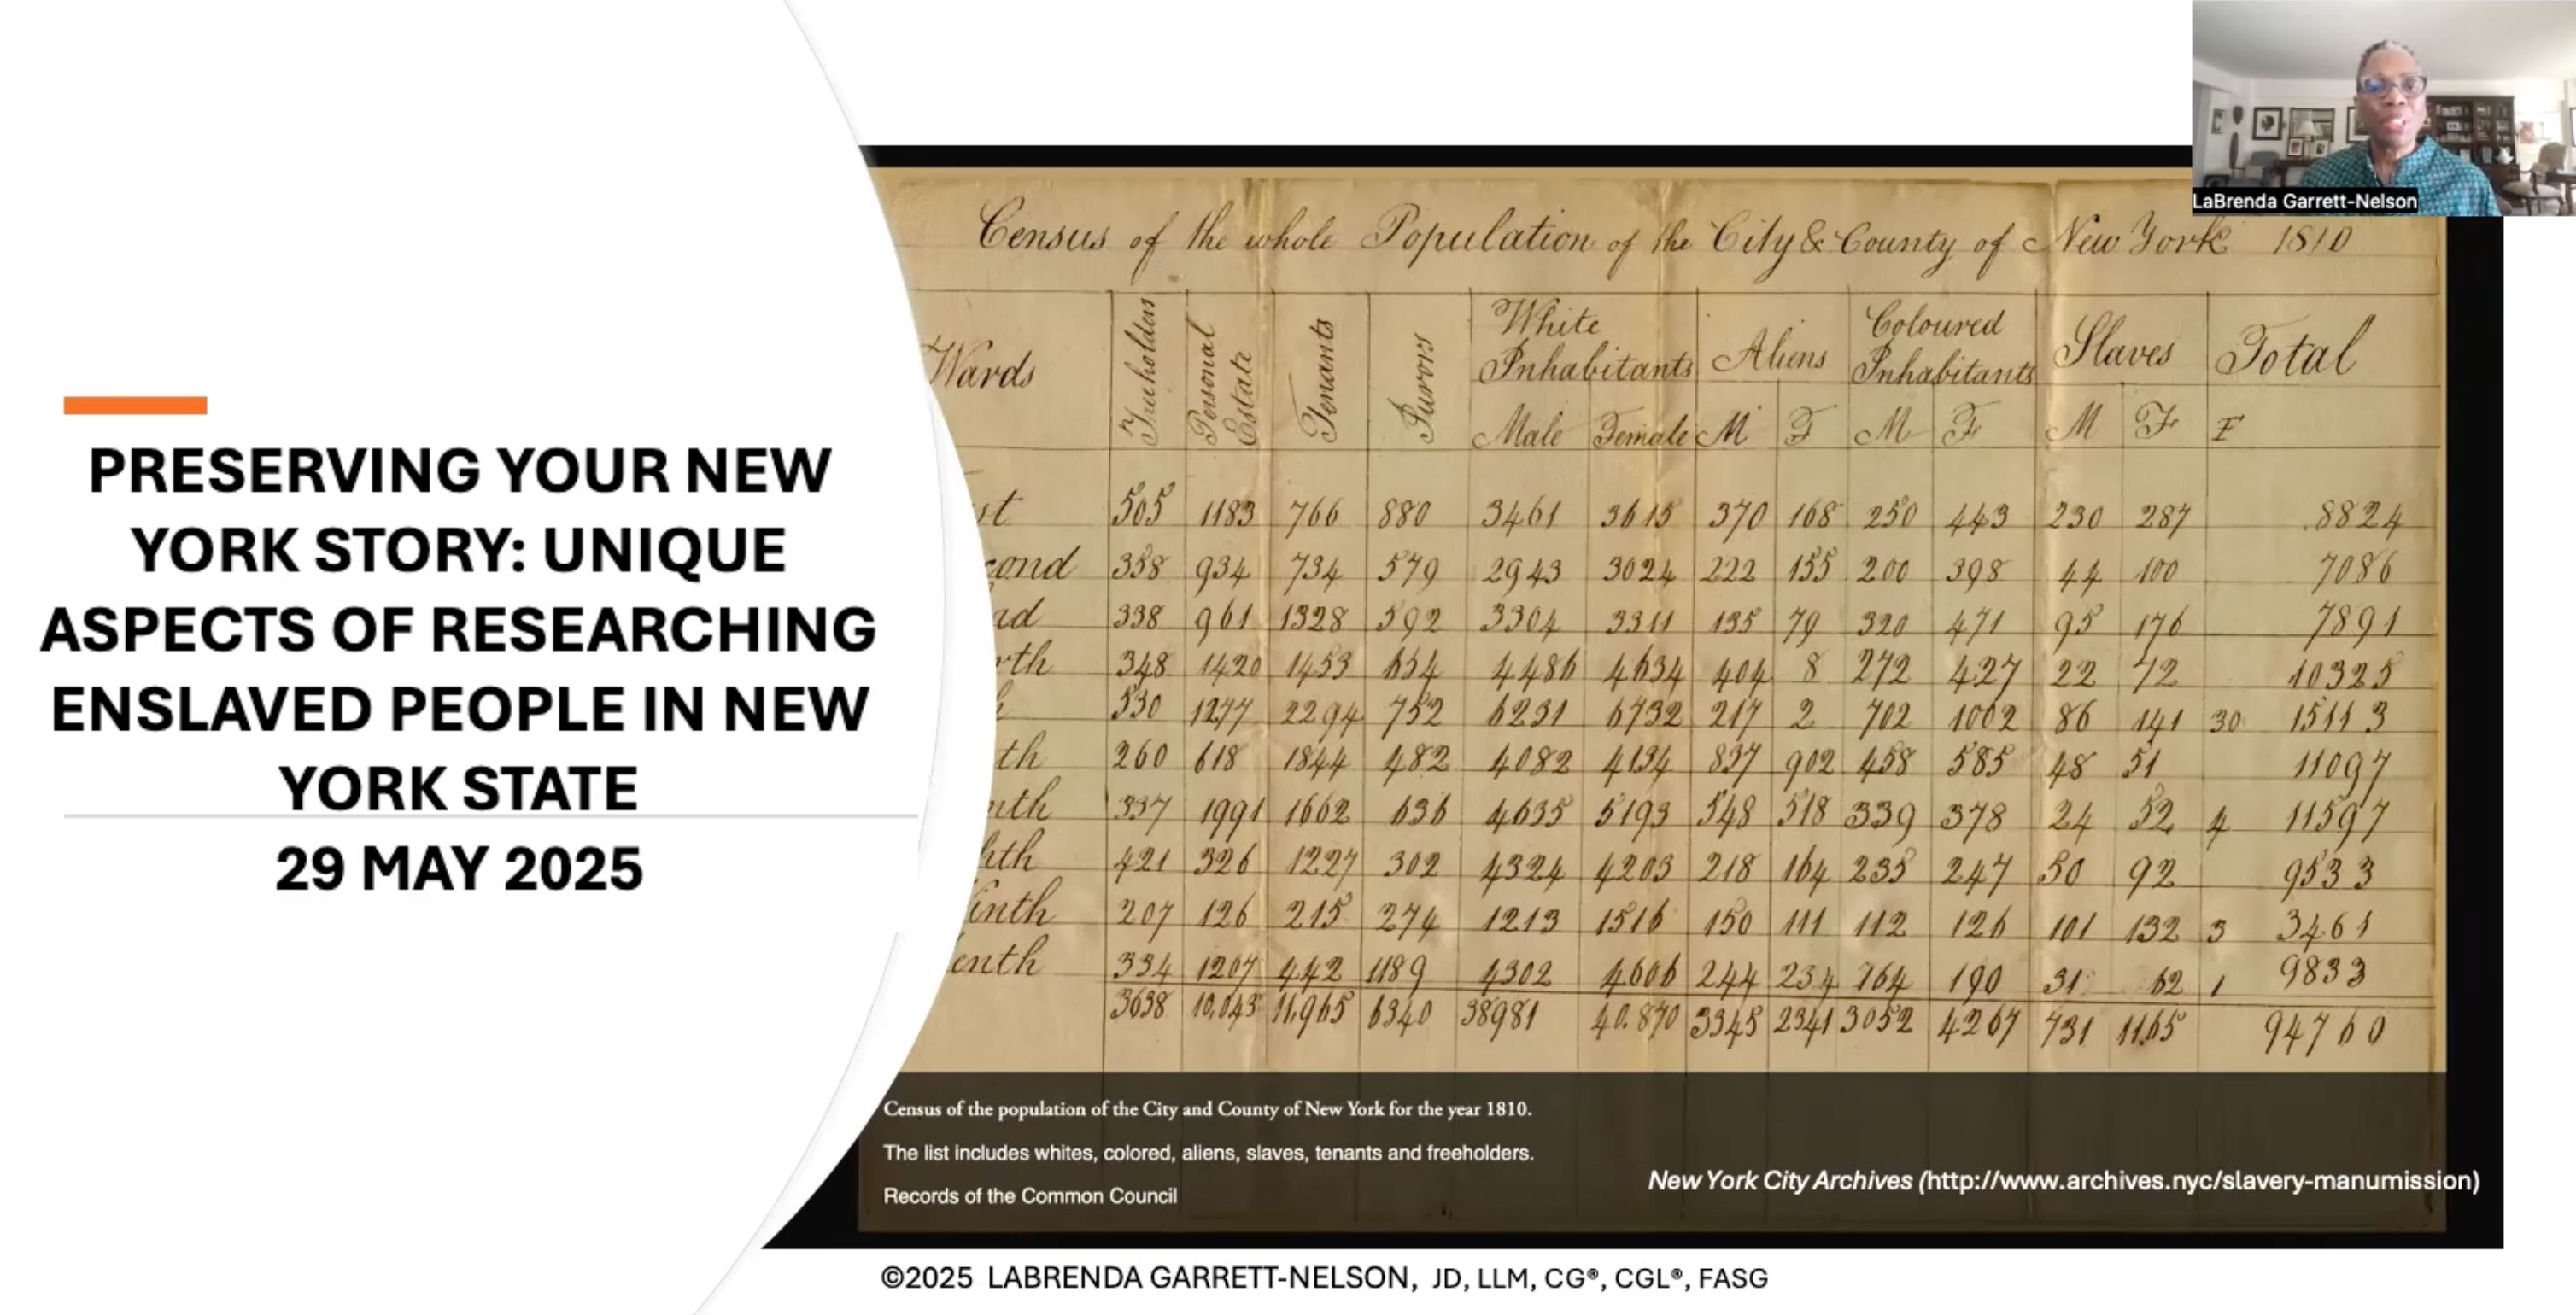 PRESERVING YOUR NEW
YORK STORY: UNIQUE
ASPECTS OF RESEARCHING
ENSLAVED PEOPLE IN NEW
YORK STATE
29 MAY 2025
LaBrenda Garrett-Nelson
Census of the whole Population of the City & County of New York 1810
Wards Freeholders Personal Estate Tenants Jurors White Inhabitants Aliens Coloured Inhabitants Slaves Total
Male Female M F M F M F
st 505 1183 766 880 3461 3615 370 168 250 443 230 287 8824
cond 358 934 734 579 2943 3024 222 155 200 398 44 100 7086
338 961 1328 592 3304 3311 135 79 320 471 95 176 7891
rth 348 1420 1453 654 4486 4634 404 8 272 427 22 72 10325
530 1277 2294 752 6231 6732 217 2 702 1002 86 141 30 15113
th 260 618 1844 482 4082 4134 837 902 458 585 48 51 11097
nth 337 1991 1662 636 4635 5193 548 518 339 378 24 52 4 11597
hth 421 326 1227 302 4324 4203 218 164 235 247 50 92 9533
inth 207 126 215 274 1213 1516 150 111 112 126 101 132 3 3461
enth 334 1207 442 1189 4302 4606 244 234 164 190 31 62 1 9833
3638 10,043 11,965 6340 38981 40.870 3345 2341 3052 4267 731 1165 94760
Census of the population of the City and County of New York for the year 1810.
The list includes whites, colored, aliens, slaves, tenants and freeholders.
Records of the Common Council
New York City Archives (http://www.archives.nyc/slavery-manumission)
©2025 LABRENDA GARRETT-NELSON, JD, LLM, CG®, CGL®, FASG